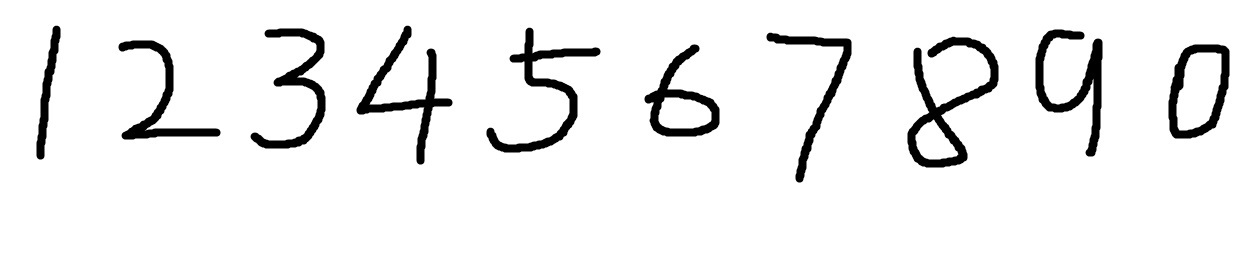 1 2 3 4 5 6 7 8 9 0